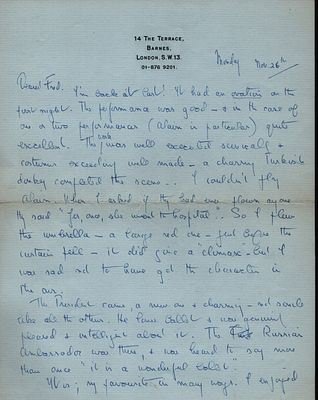 14 THE TERRACE,
BARNES,
LONDON, S.W.13.
01-876 9201.
Monday Nov. 26th
Dearest Fred. I'm back at last! It had an ovation on the
first night. The performance was good - & in the case of
one or two performances (Alarm in particular) quite
excellent. The was well executed &
costumes exceedingly well made - a charming Turkish
donkey completed the scene... I couldn't fly
Alarm. When I asked if they had ever flown anyone
they said "for one, she went to hospital". So I flew
the umbrella - a large red one - just before the
curtain fell - it did give a "climax" - but I
was sad not to have got the character in
the air.
The President came, a new one & charming - not
like all the others. He loves ballet & was genuinely
pleased & intelligent about it. The Russian
Ambassador was there, & was heard to say more
than once "it is a wonderful ballet".
It is, my favourite in many ways. I enjoyed